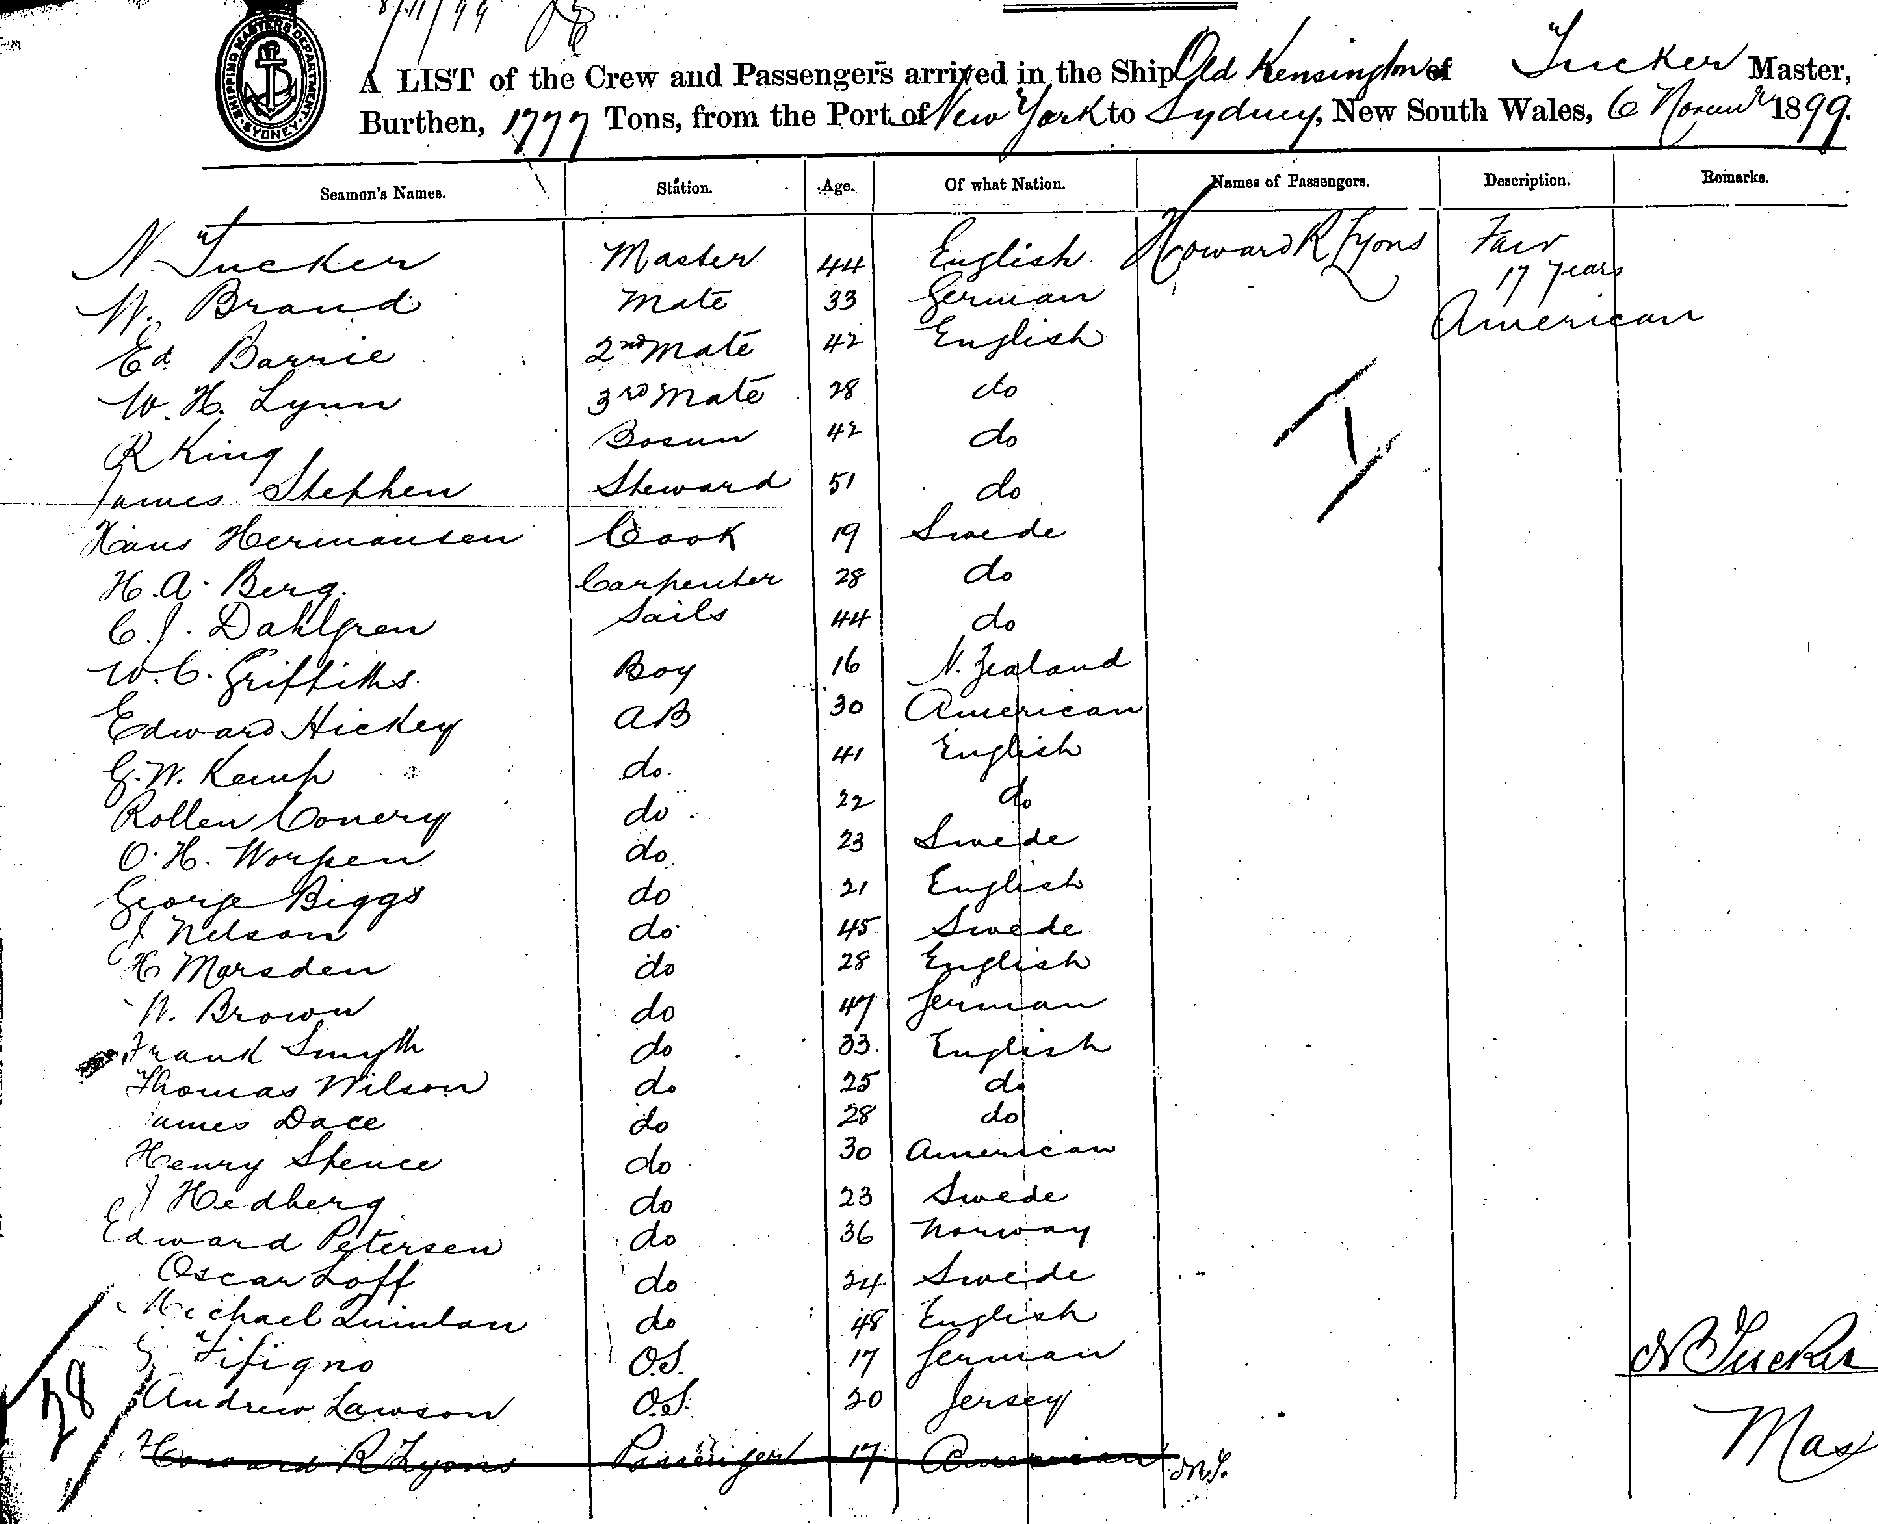 8/11/99
SHIPPING MASTERS DEPARTMENT SYDNEY
A LIST of the Crew and Passengers arrived in the Ship Old Kensington of Tucker Master,
Burthen, 1777 Tons, from the Port of New York to Sydney, New South Wales, 6 Novemr 1899.
Seamen's Names. Station. Age. Of what Nation. Names of Passengers. Description. Remarks.
N. Tucker Master 44 English Howard R Lyons Fair
17 years
W. Brand Mate 33 German American
Ed. Barrie 2nd Mate 42 English
W. H. Lynn 3rd Mate 28 do
R King Bosun 42 do
James Stephen Steward 51 do
Hans Hermansen Cook 19 Swede
H. A. Berg. Carpenter 28 do
C. J. Dahlgren Sails 44 do
W. C. Griffiths. Boy 16 N. Zealand
Edward Hickey AB 30 American
G. W. Kemp do. 41 English
Rollen Conery do 22 do
O. H. Worpen do 23 Swede
George Biggs do 21 English
J Nelson do 45 Swede
H Marsden do 28 English
W. Brown do 47 German
Frank Smyth do 33. English
Thomas Wilson do 25 do
James Dace do 28 do
Henry Spence do 30 American
J Hedberg do 23 Swede
Edward Petersen do 36 Norway
Oscar Loff do 24 Swede
Michael Quinlan do 48 English
G Tifigno O.S. 17 German
N B Tucker
Andrew Lawson O.S. 20 Jersey
28
Mas
Howard R Lyons Passenger 17 American